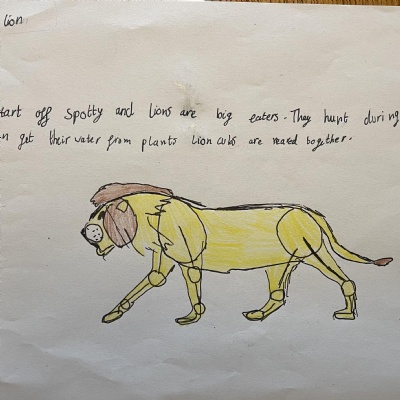 lion
tart off spotty and lions are big eaters. They hunt during
n get their water from plants Lion cubs are reared together.